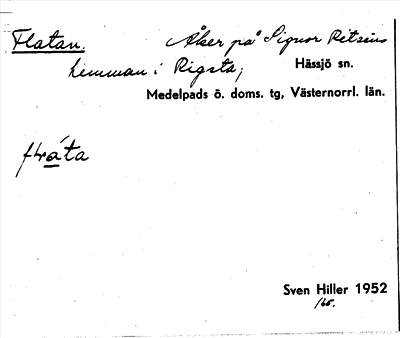 Flatan. Åker på Signor Retsius
hemman i Rigsta, Hässjö sn.
Medelpads ö. doms. tg, Västernorrl. län.
fɫáta
Sven Hiller 1952
/bs.